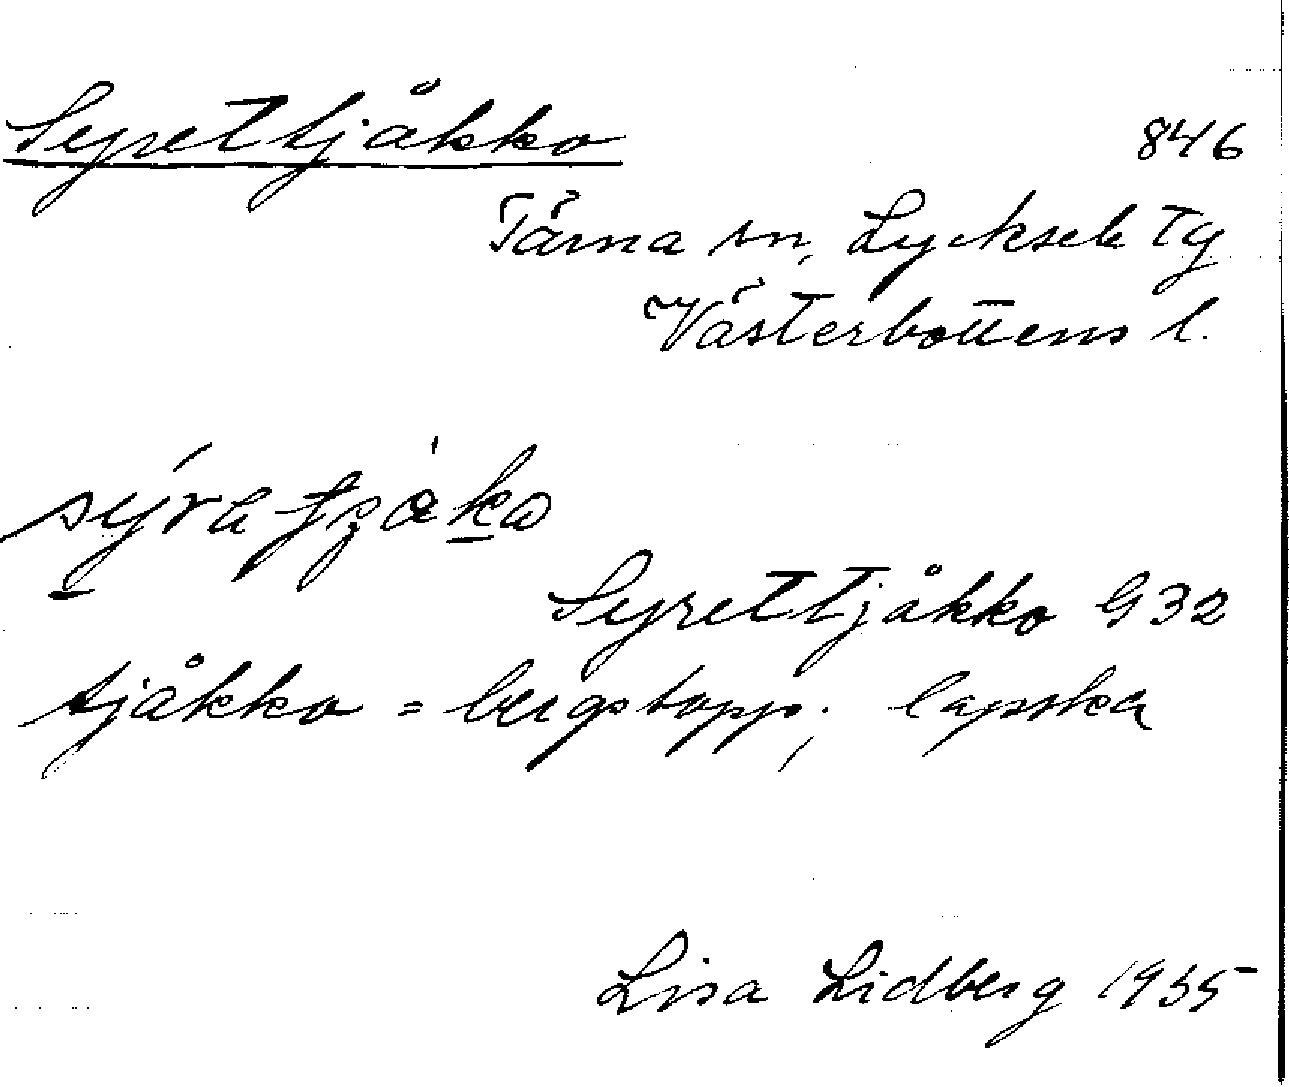 Syrettjåkko
846
Tärna sn, Lycksele Tg
Västerbottens l.
Syrettjåkko G32
tjåkko = bergstopp; lapska
Lisa Lidberg 1935